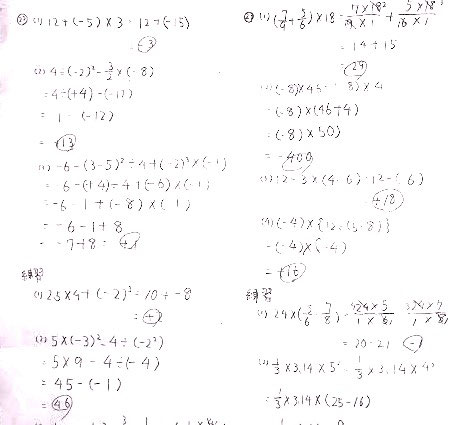 (1) 12 + (-5) × 3 = 12 + (-15)
= -3
(2) 4 ÷ (-2)² - 3/2 × (-8)
= 4 ÷ (+4) - (-12)
= 1 - (-12)
= +13
= -6 - (3-5)² ÷ 4 + (-2)³ × (-1)
= -6 - (+4) ÷ 4 + (-8) × (-1)
= -6 - 1 + (-8) × (-1)
= -6 - 1 + 8
= -7 + 8 = +1
練習
(1) 2.5 × 4 + (-2)³ = 10 + -8
= +2
(2) 5 × (-3)² - 4 ÷ (-2²)
= 5 × 9 - 4 ÷ (-4)
= 45 - (-1)
= 46
(1) (7/9 + 5/6) × 18 =
= 14 + 15
= 29
(-8) × 46 + (-8) × 4
= (-8) × (46 + 4)
= (-8) × 50
= -400
(3) 12 - 3 × (4 - 6) = 12 - (-6)
+18
(4) (-4) × {12 ÷ (5-8)}
= (-4) × (-4)
= +16
練習
(1) 24 × (5/6 - 7/8) =
= 20 - 21
(2) 1/3 × 3.14 × 5² - 1/3 × 3.14 × 4²
= 1/3 × 3.14 × (25 - 16)